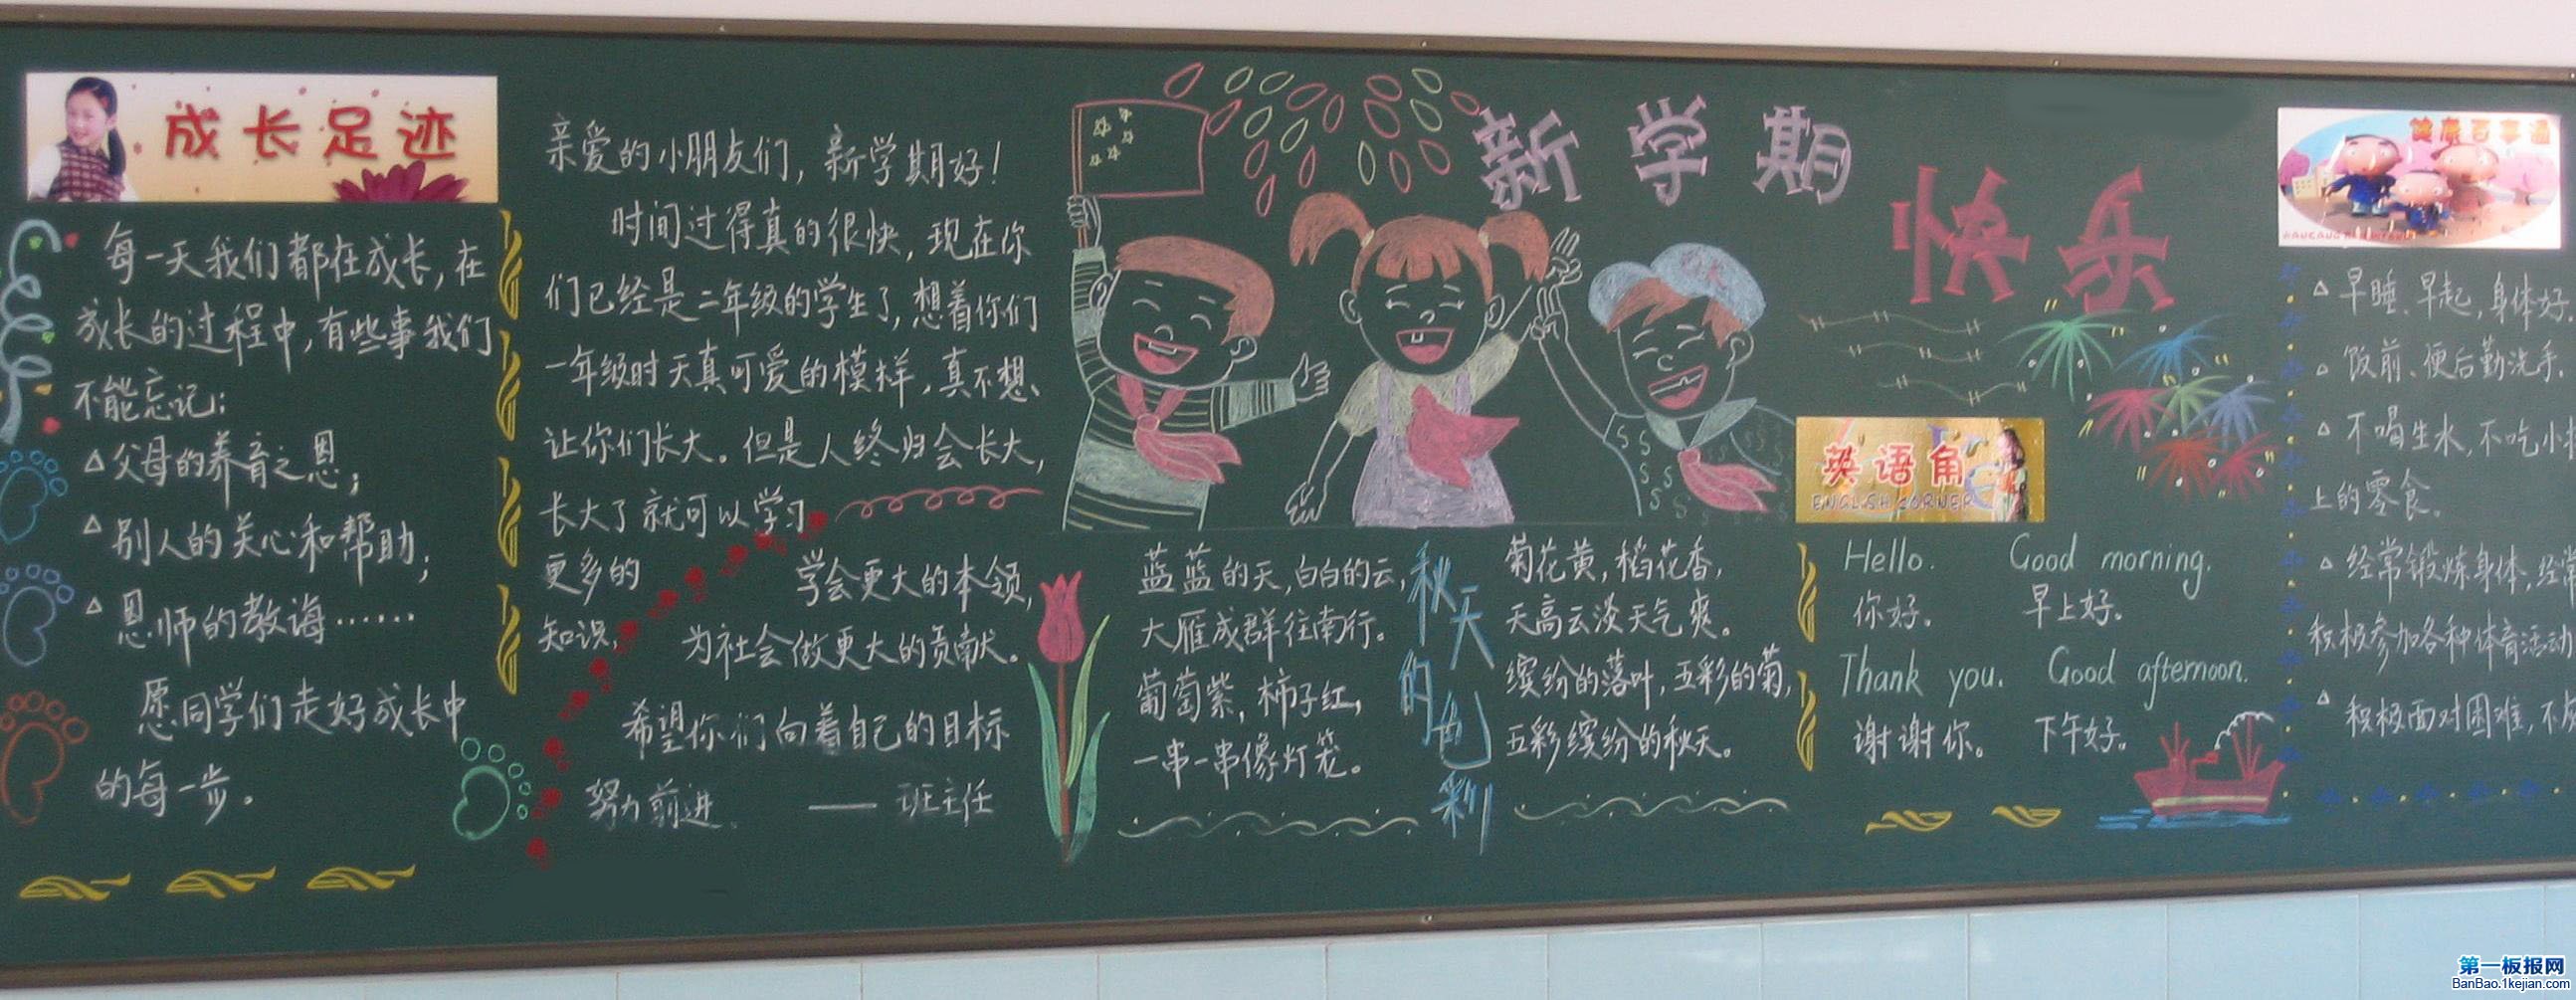 成长足迹
每一天我们都在成长,在
成长的过程中,有些事我们
不能忘记:
△父母的养育之恩;
△别人的关心和帮助;
△恩师的教诲……
愿同学们走好成长中
的每一步。
亲爱的小朋友们,新学期好!
时间过得真的很快,现在你
们已经是二年级的学生了,想着你们
一年级时天真可爱的模样,真不想、
让你们长大。但是人终归会长大,
长大了就可以学习
更多的
知识,
学会更大的本领,
为社会做更大的贡献。
希望你们向着自己的目标
努力前进.
—— 班主任
新学期
快乐
秋天的色彩
蓝蓝的天,白白的云,
大雁成群往南行。
葡萄紫,柿子红,
一串一串像灯笼。
菊花黄,稻花香,
天高云淡天气爽。
缤纷的落叶,五彩的菊,
五彩缤纷的秋天。
英语角
ENGLISH CORNER
Hello. Good morning.
你好。 早上好。
Thank you. Good afternoon.
谢谢你。 下午好。
健康百事通
△早睡、早起,身体好.
△饭前、便后勤洗手.
△不喝生水,不吃小
上的零食。
△经常锻炼身体,经常
积极参加各种体育活动
△积极面对困难,不
第一板报网
BanBao.1kejian.com